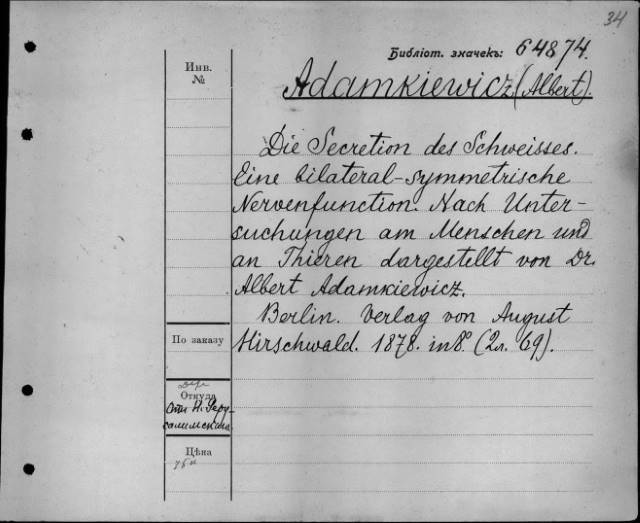 34
Библіот. значекъ: 64874.
Инв.
№
Adamkiewicz (Albert).
Die Secretion des Schweisses.
Eine bilateral-symmetrische
Nervenfunction. Nach Unter-
suchungen am Menschen und
an Thieren dargestellt von Dr.
Albert Adamkiewicz.
Berlin. Verlag von August
Hirschwald. 1878. in 8°. (2л. 69).
По заказу
Откуда
Отъ Н. Іеру-
салимскаго
Цѣна